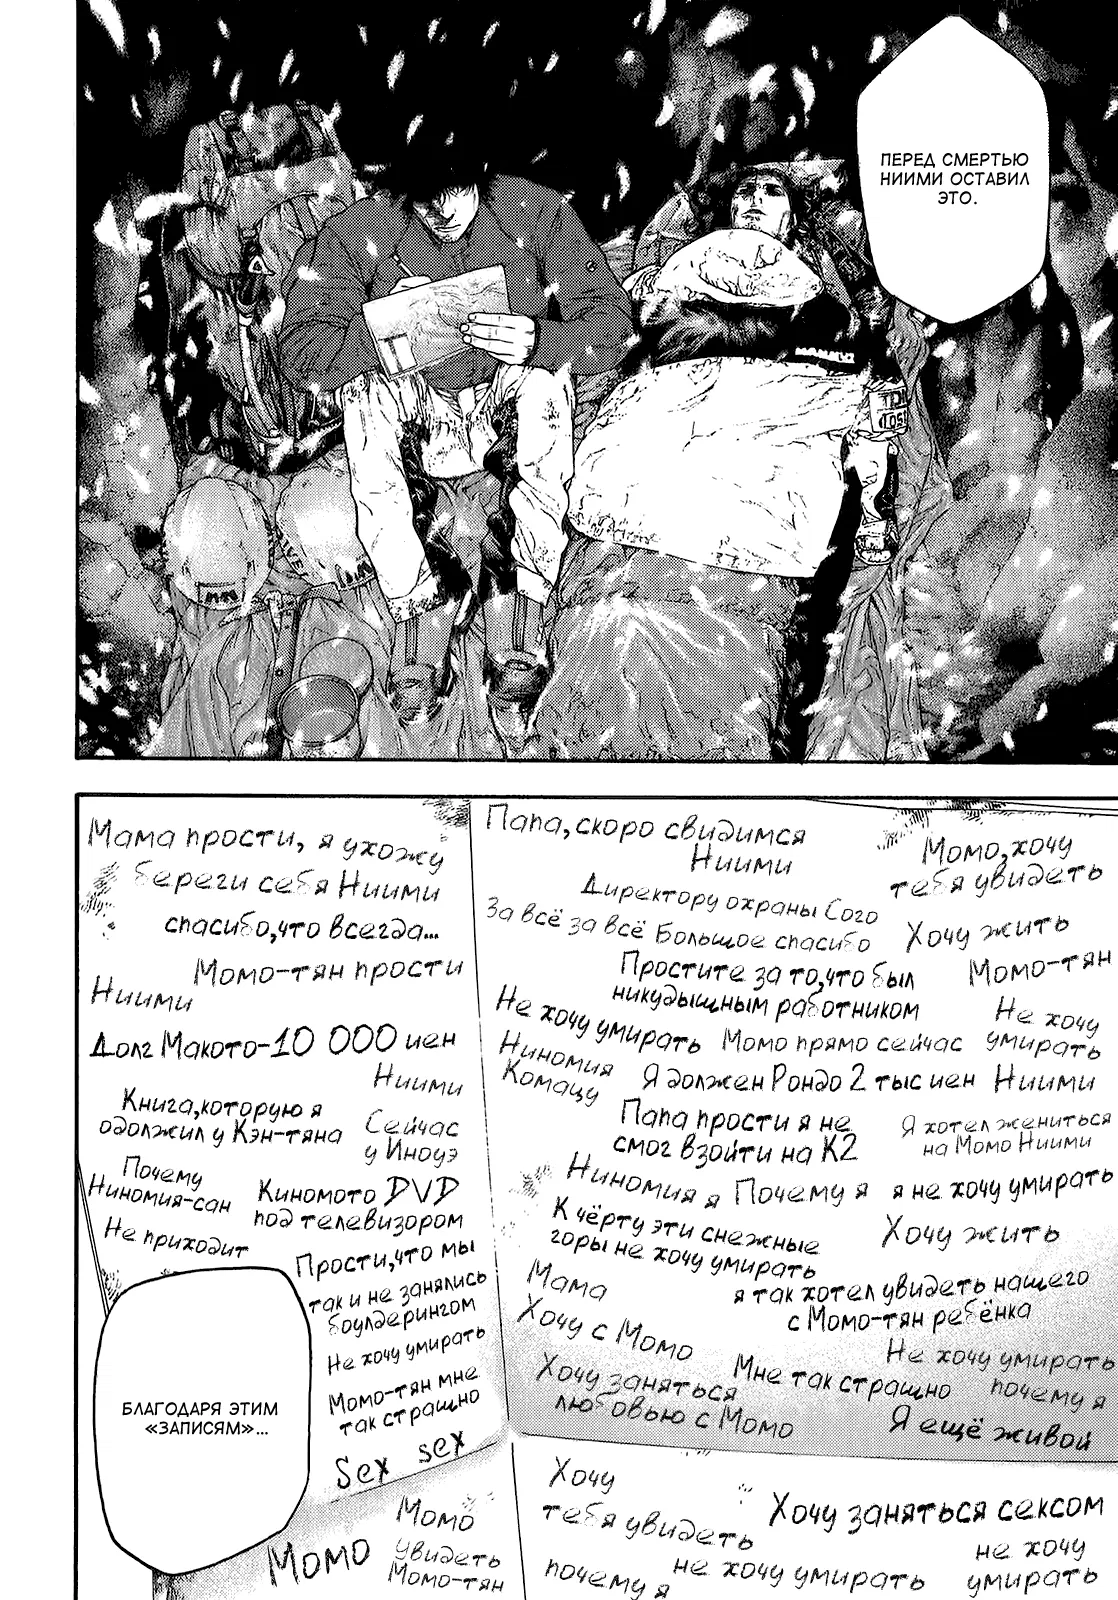 ПЕРЕД СМЕРТЬЮ
НИИМИ ОСТАВИЛ
ЭТО.
Мама прости, я ухожу
береги себя Ниими
спасибо,что всегда...
Момо-тян прости
Ниими
Долг Макото-10 000 иен
Ниими
Книга,которую я
одолжил у Кэн-тяна
Сейчас
у Иноуэ
Почему
Ниномия-сан
Киномото DVD
под телевизором
Не приходит
Прости,что мы
так и не занялись
боулдерингом
Не хочу умирать
Момо-тян мне
так страшно
Sex sex
Папа,скоро свидимся
Ниими
Момо,хочу
тебя увидеть
Директору охраны Сого
За всё за всё Большое спасибо
Хочу жить
Простите за то,что был
никудышным работником
Момо-тян
Не хочу умирать
Момо прямо сейчас
Не хочу
умирать
Ниномия
Комацу
Я должен Рондо 2 тыс иен
Ниими
Папа прости я не
смог взойти на К2
Я хотел жениться
на Момо Ниими
Ниномия я
Почему я
я не хочу умирать
К чёрту эти снежные
горы не хочу умирать
Хочу жить
Мама
я так хотел увидеть нашего
с Момо-тян ребёнка
Хочу с Момо
Не хочу умирать
Хочу заняться
любовью с Момо
Мне так страшно
почему я
Я ещё живой
БЛАГОДАРЯ ЭТИМ
«ЗАПИСЯМ»...
Момо
Момо
увидеть
Момо-тян
Хочу
тебя увидеть
Хочу заняться сексом
почему я
не хочу умирать
не хочу
умирать